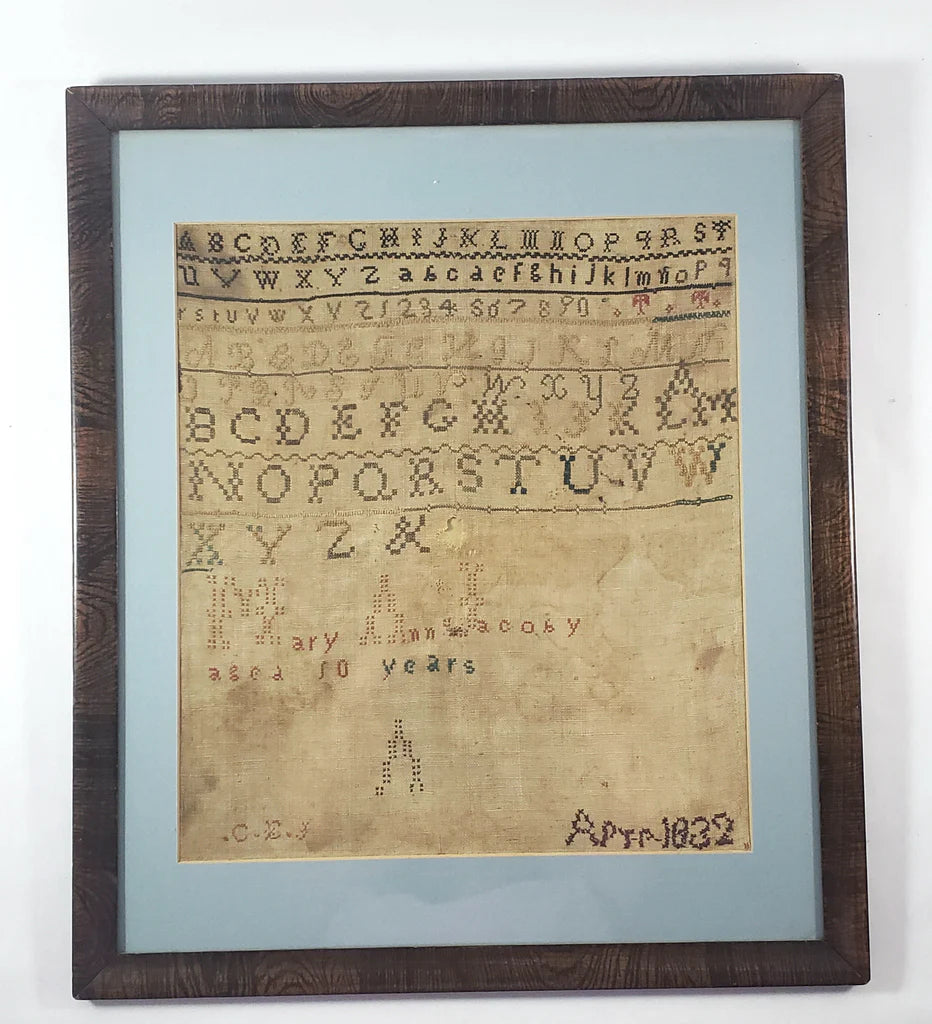 A B C D E F G H I J K L M N O P q R S T
U V W X Y Z a b c d e f g h i j k l m n o p q
r s t u v w X Y Z 1 2 3 4 5 6 7 8 9 0
A B C D E F G H I J K L M N
O P Q R S T U V W X Y Z
B C D E F G H I J K L M
N O P Q R S T U V W
X Y Z &
Mary Ann Jacoby
aged 10 years
A
Apr 1832